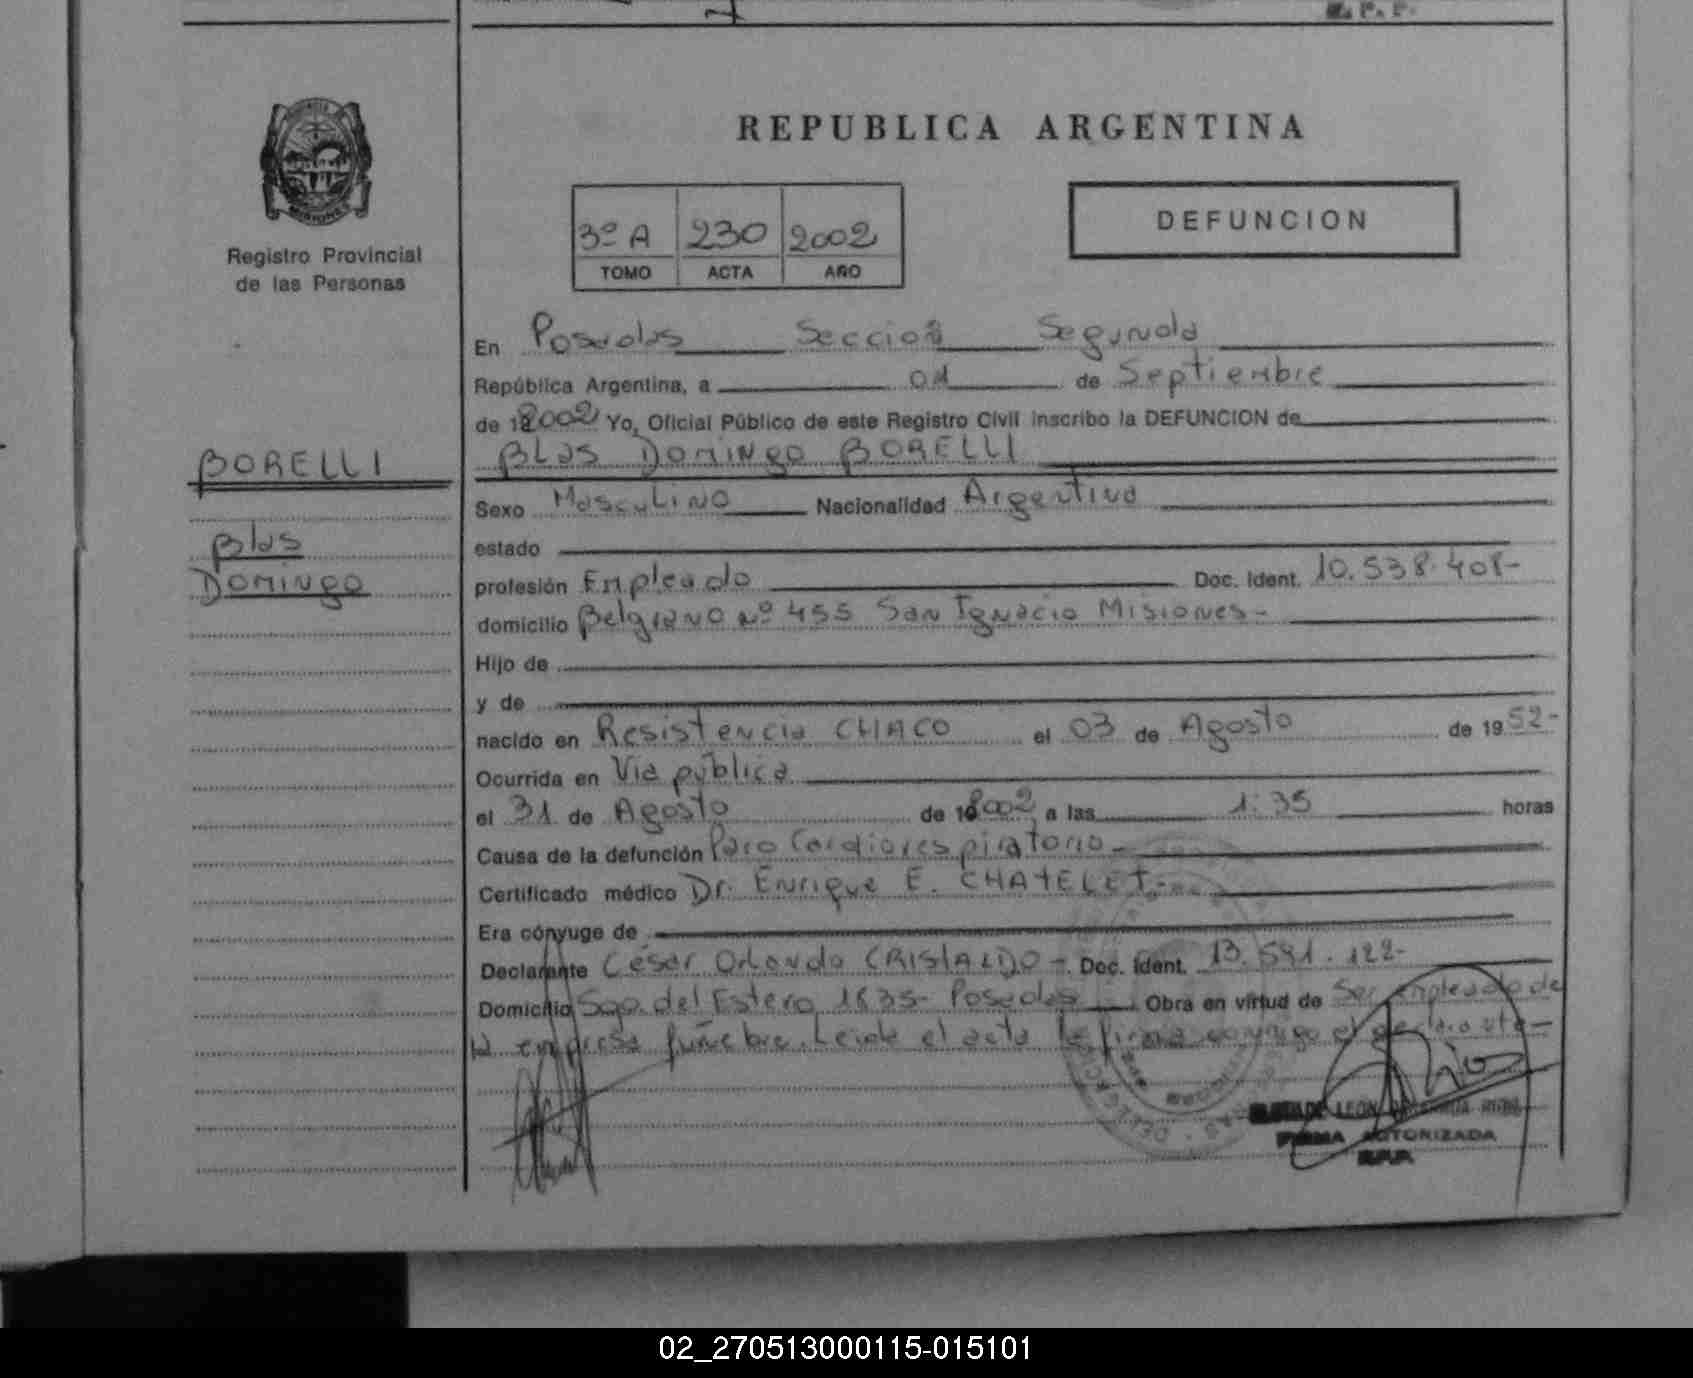 REPUBLICA ARGENTINA
Registro Provincial
de las Personas
3º A 230 2002
TOMO ACTA AÑO
DEFUNCION
En Posadas Sección Segunda
República Argentina, a 01 de Septiembre
de 2002 Yo, Oficial Público de este Registro Civil inscribo la DEFUNCION de
BORELLI
Blas
Domingo
Blas Domingo BORELLI
Sexo Masculino Nacionalidad Argentina
estado
profesión Empleado Doc. Ident. 10.538.408-
domicilio Belgrano Nº 455 San Ignacio Misiones-
Hijo de
y de
nacido en Resistencia CHACO el 03 de Agosto de 1952-
Ocurrida en Via pública
el 31 de Agosto de 2002, a las 1:35 horas
Causa de la defunción Paro Cardiorespiratorio-
Certificado médico Dr. Enrique E. CHATELET-
Era cónyuge de
Declarante César Orlando CRISTALDO- Doc. Ident. 13.591.122-
Domicilio Sgo. del Estero 1835- Posadas Obra en virtud de Ser empleado de
la empresa fúnebre. Leida el acta la firma conmigo el declarante-
DE LEON
FIRMA AUTORIZADA
R.P.P.
02_270513000115-015101